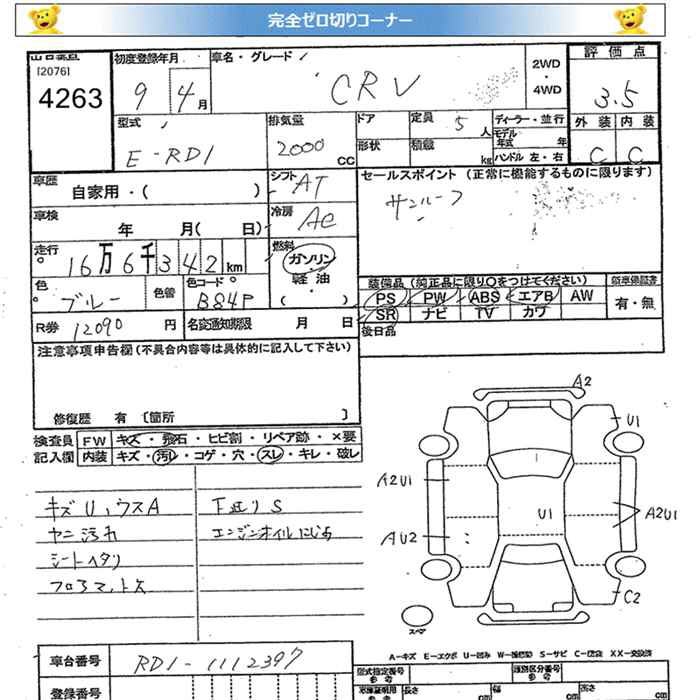 完全ゼロ切りコーナー
[2076]
4263
初度登録年月
9 4月
車名・グレード
CRV
2WD
・
4WD
評価点
3.5
外装 内装
C C
型式
E-RD1
排気量
2000 cc
ドア
形状
定員 5 人
積載 kg
ディーラー・並行
モデル年式 年
ハンドル 左・右
車歴
自家用・( )
シフト AT
セールスポイント (正常に機能するものに限ります)
サンルーフ
車検
年 月( 日)
冷房 AC
走行
16万6千342km
燃料
ガソリン
軽・油
( )
色
ブルー
色替
色コード
B84P
装備品 (純正品に限り○をつけてください)
新車保証書
PS PW ABS エアB AW
有・無
SR ナビ TV カワ
後日品
R券 12090 円
名変通知期限 月 日
注意事項申告欄(不具合内容等は具体的に記入して下さい)
修復歴 有 〔箇所 〕
検査員
記入欄
FW キズ・飛石・ヒビ割・リペア跡・×要
内装 キズ・汚レ・コゲ・穴・スレ・キレ・破レ
キズU,ウスA
ヤニ汚れ
シートヘタリ
フロアマット欠
下廻りS
エンジンオイルにじみ
A2
U1
A2U1
U1
A2U1
AU2
C2
スペア
A-キズ E-エクボ U-凹み W-補修跡 S-サビ C-腐蝕 XX-交換済
車台番号
RD1-1112397
登録番号
型式指定番号
参考
類別区分番号
参考
長さ cm
幅 cm
高さ cm